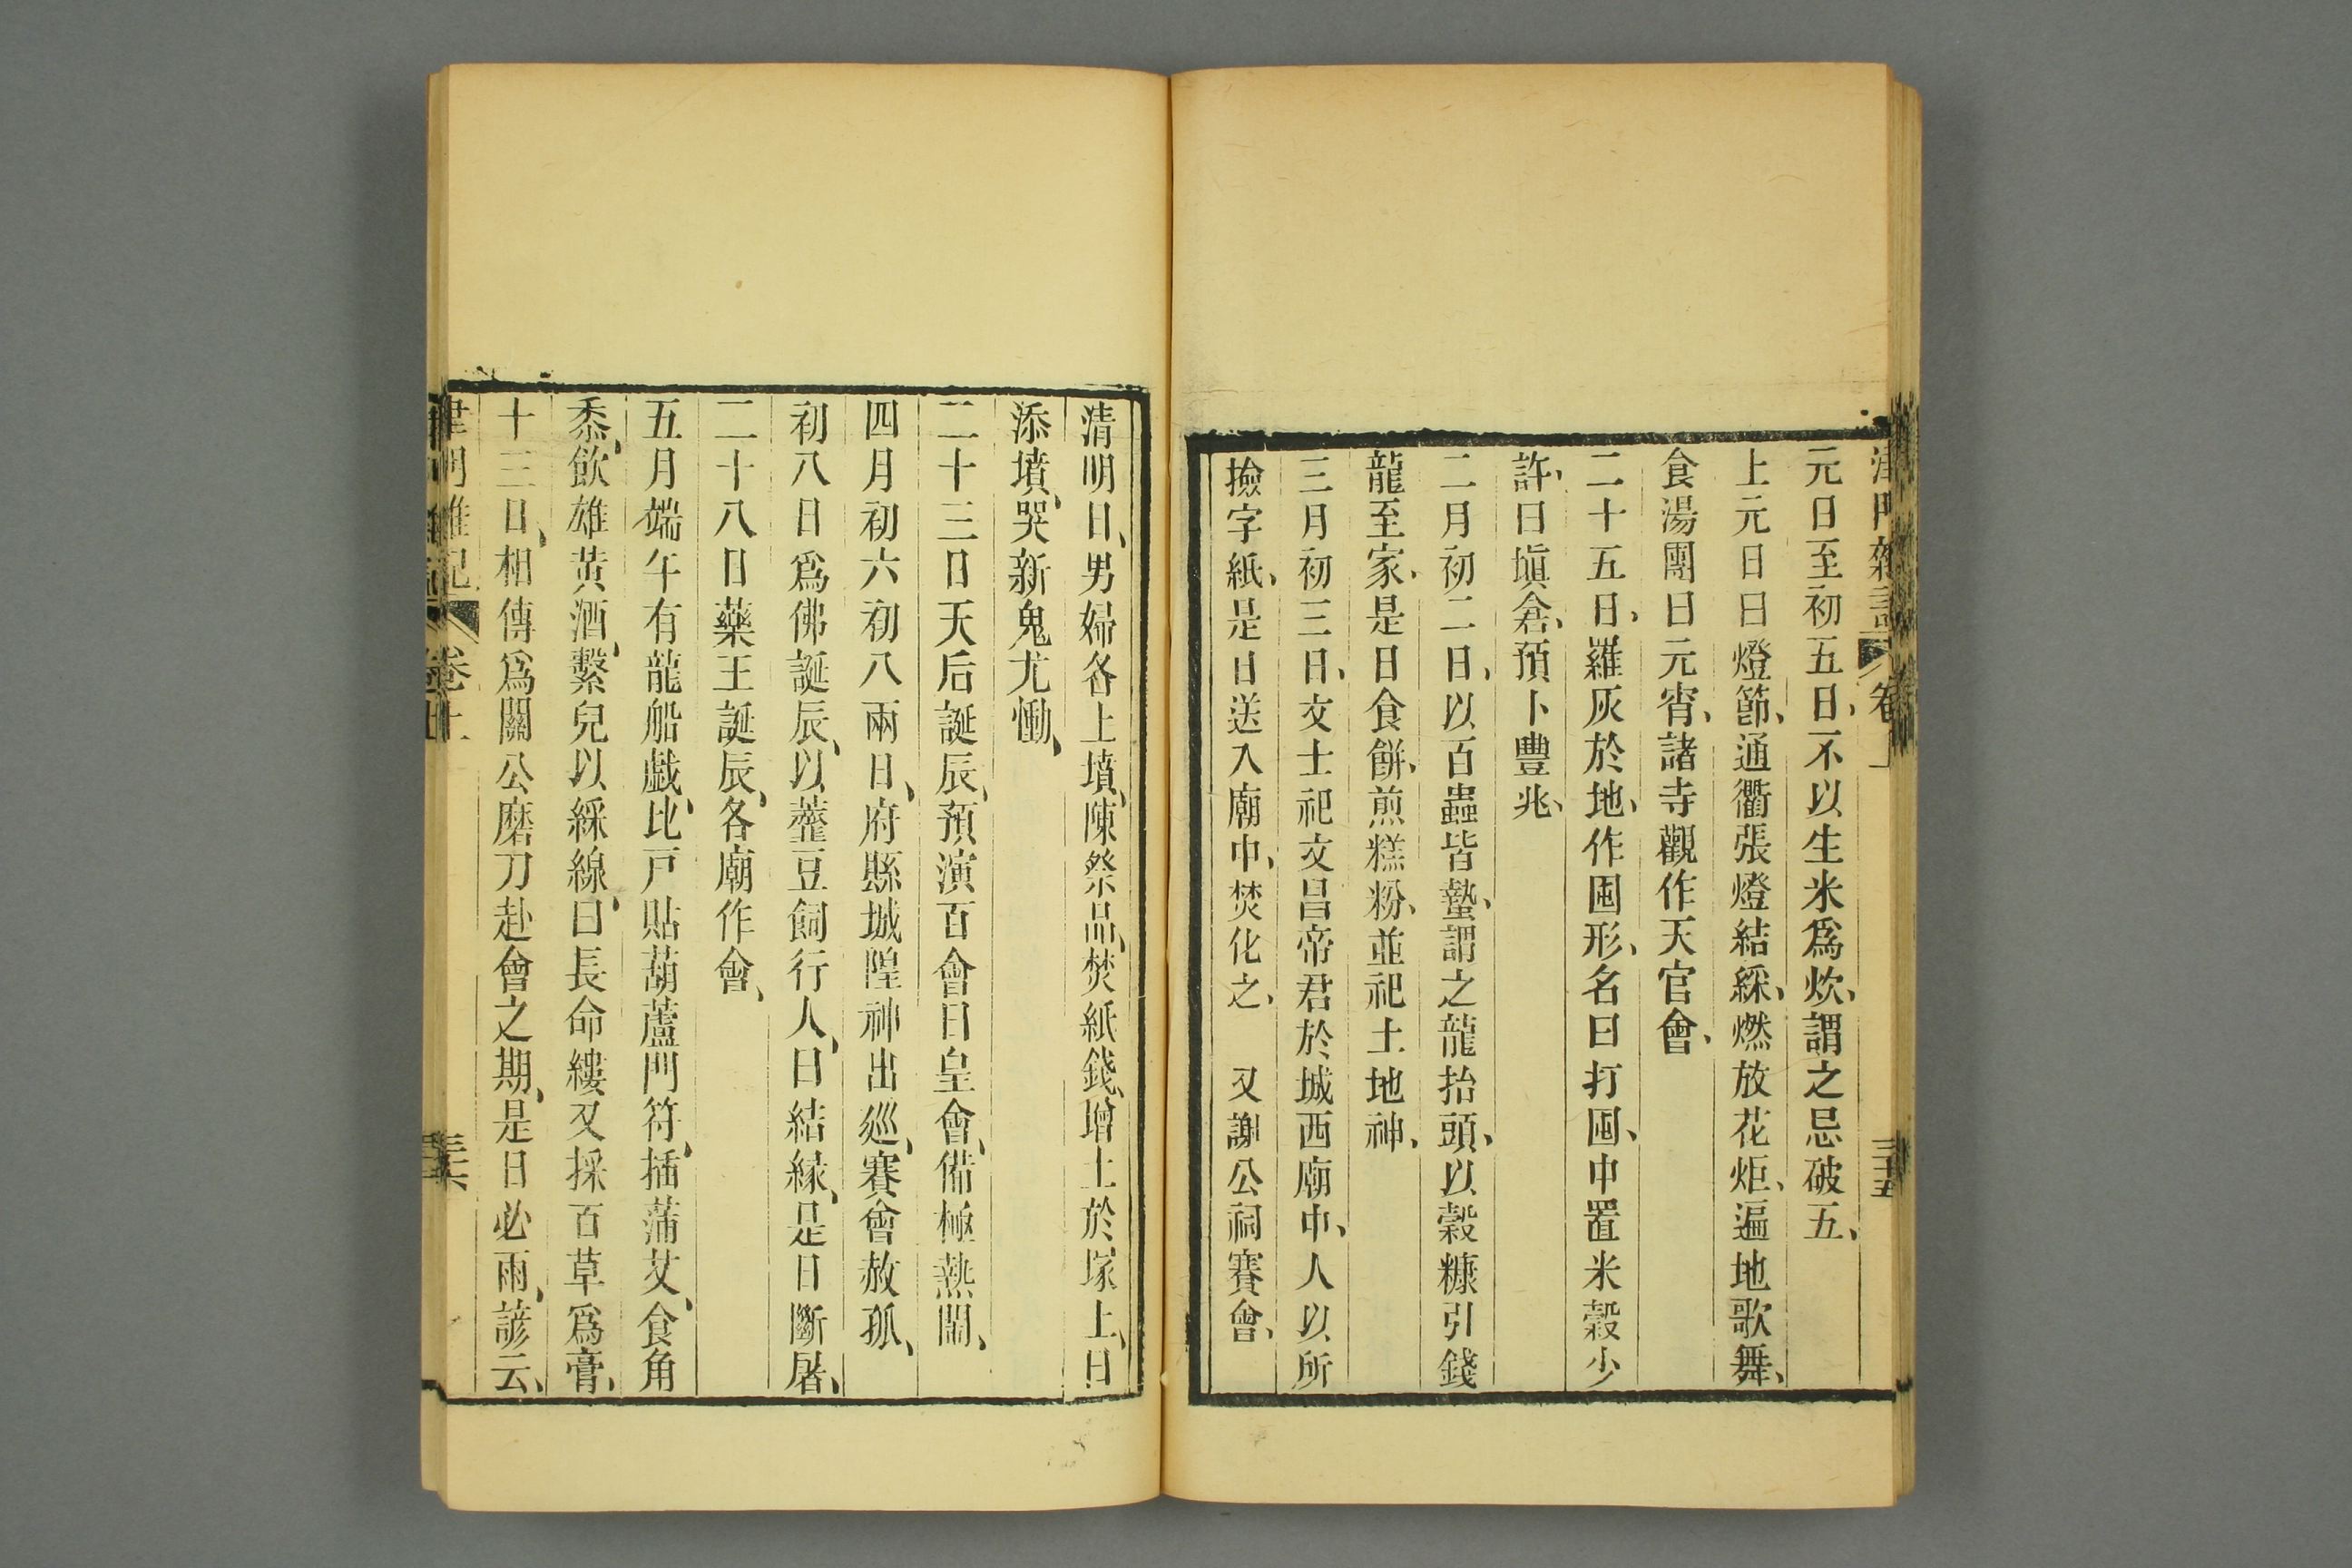 津門雜記 卷上 三十五
元日至初五日、不以生米爲炊、謂之忌破五、
上元日曰燈節、通衢張燈結綵、燃放花炬、遍地歌舞、
食湯團曰元宵、諸寺觀作天官會、
二十五日、羅灰於地、作囤形、名曰打囤、中置米穀少
許、曰塡倉、預卜豐兆、
二月初二日、以百蟲皆蟄、謂之龍抬頭、以穀糠引錢
龍至家、是日食餅、煎糕粉、並祀土地神、
三月初三日、文士祀文昌帝君於城西廟中、人以所
撿字紙、是日送入廟中、焚化之、 又謝公祠賽會、
清明日、男婦各上墳、陳祭品、焚紙錢、增土於塚上、曰
添墳、哭新鬼尤慟、
二十三日天后誕辰、預演百會、曰皇會、備極熱鬧、
四月初六初八兩日、府縣城隍神出巡、賽會赦孤、
初八日爲佛誕辰、以虀豆飼行人、曰結緣、是日斷屠、
二十八日藥王誕辰、各廟作會、
五月端午有龍船戲、比戸貼葫蘆門符、插蒲艾、食角
黍、飲雄黃酒、繫兒以綵線、曰長命縷又採百草爲膏、
十三日、相傳爲關公磨刀赴會之期、是日必雨、諺云、
津門雜記 卷上 三十六